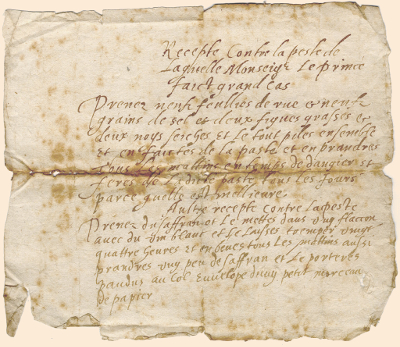 Recepte Contre la peste de
Laquelle Monseigr Le prince
Faict grand Cas
Prenez neuf feuilles de rue et neuf
grains de sel et deux figues grasses et
deux noys seiches et Le tout piles ensemble
et en faictes de la paste et en prandres
tous Les mattins en temps de dangier et
feres de Ladite paste tous Les Jours
parce quelle est meilleure
Aultre recepte Contre la peste
Prenez du saffran et Le mettes dans ung flacon
avec du vin blanc et Le Laisses tremper vingt
quattre heures et en beuves tous Les mattins aussi
prandres ung peu de saffran et Le porteres
pandus au Col Envelope dung petit morceau
de papier